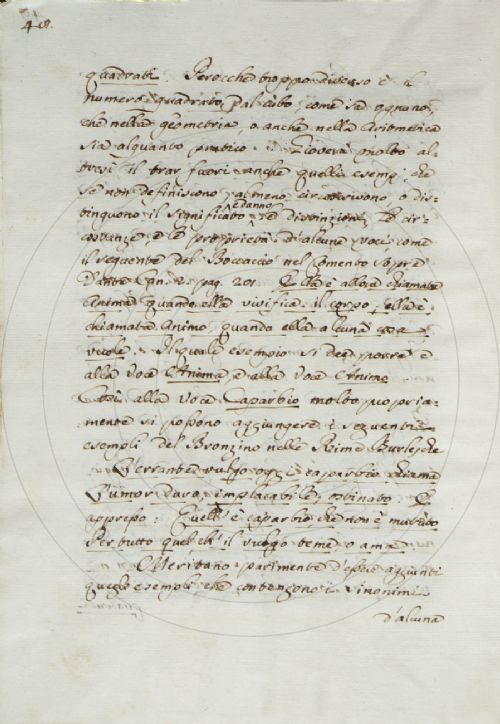 48.
quadrati. Perocchè troppo diverso è il
numero quadrato, dal cubo; come sà ognuno,
che nella geometria, o anche nella Aritmetica
sia alquanto pratico. Gioverà molto al-
tresì il trar fuori anche quelli esempj che
se non definiscono, almeno circoscrivono, o dis-
tinguono il significato, e danno le distinzioni, le cir-
costanze, e le proprietà d'alcuna voce, come
il seguente del Boccaccio nel Comento sopra
Dante Can. 2. pag. 201. Ella è allora chiamata
Anima quando ella vivifica il corpo, ella è
chiamata Animo, quando ella alcuna cosa
vuole. Il quale esempio si dee porre e
alla voce Anima, e alla voce Animo
Così alla voce Caparbio molto propria-
mente si possono aggiungere i seguenti
esempli del Bronzino nelle Rime Burlesche
L'errante vulgo oggi caparbio chiama
L'umor duro, implacabile, ostinato. E
appresso: Quell' è caparbio che non è mutato
Per tutto quel ch' il vulgo teme o ama
Meritano parimente d'esser aggiunti
quegli esempli che contengono i sinonimi
d'alcuna